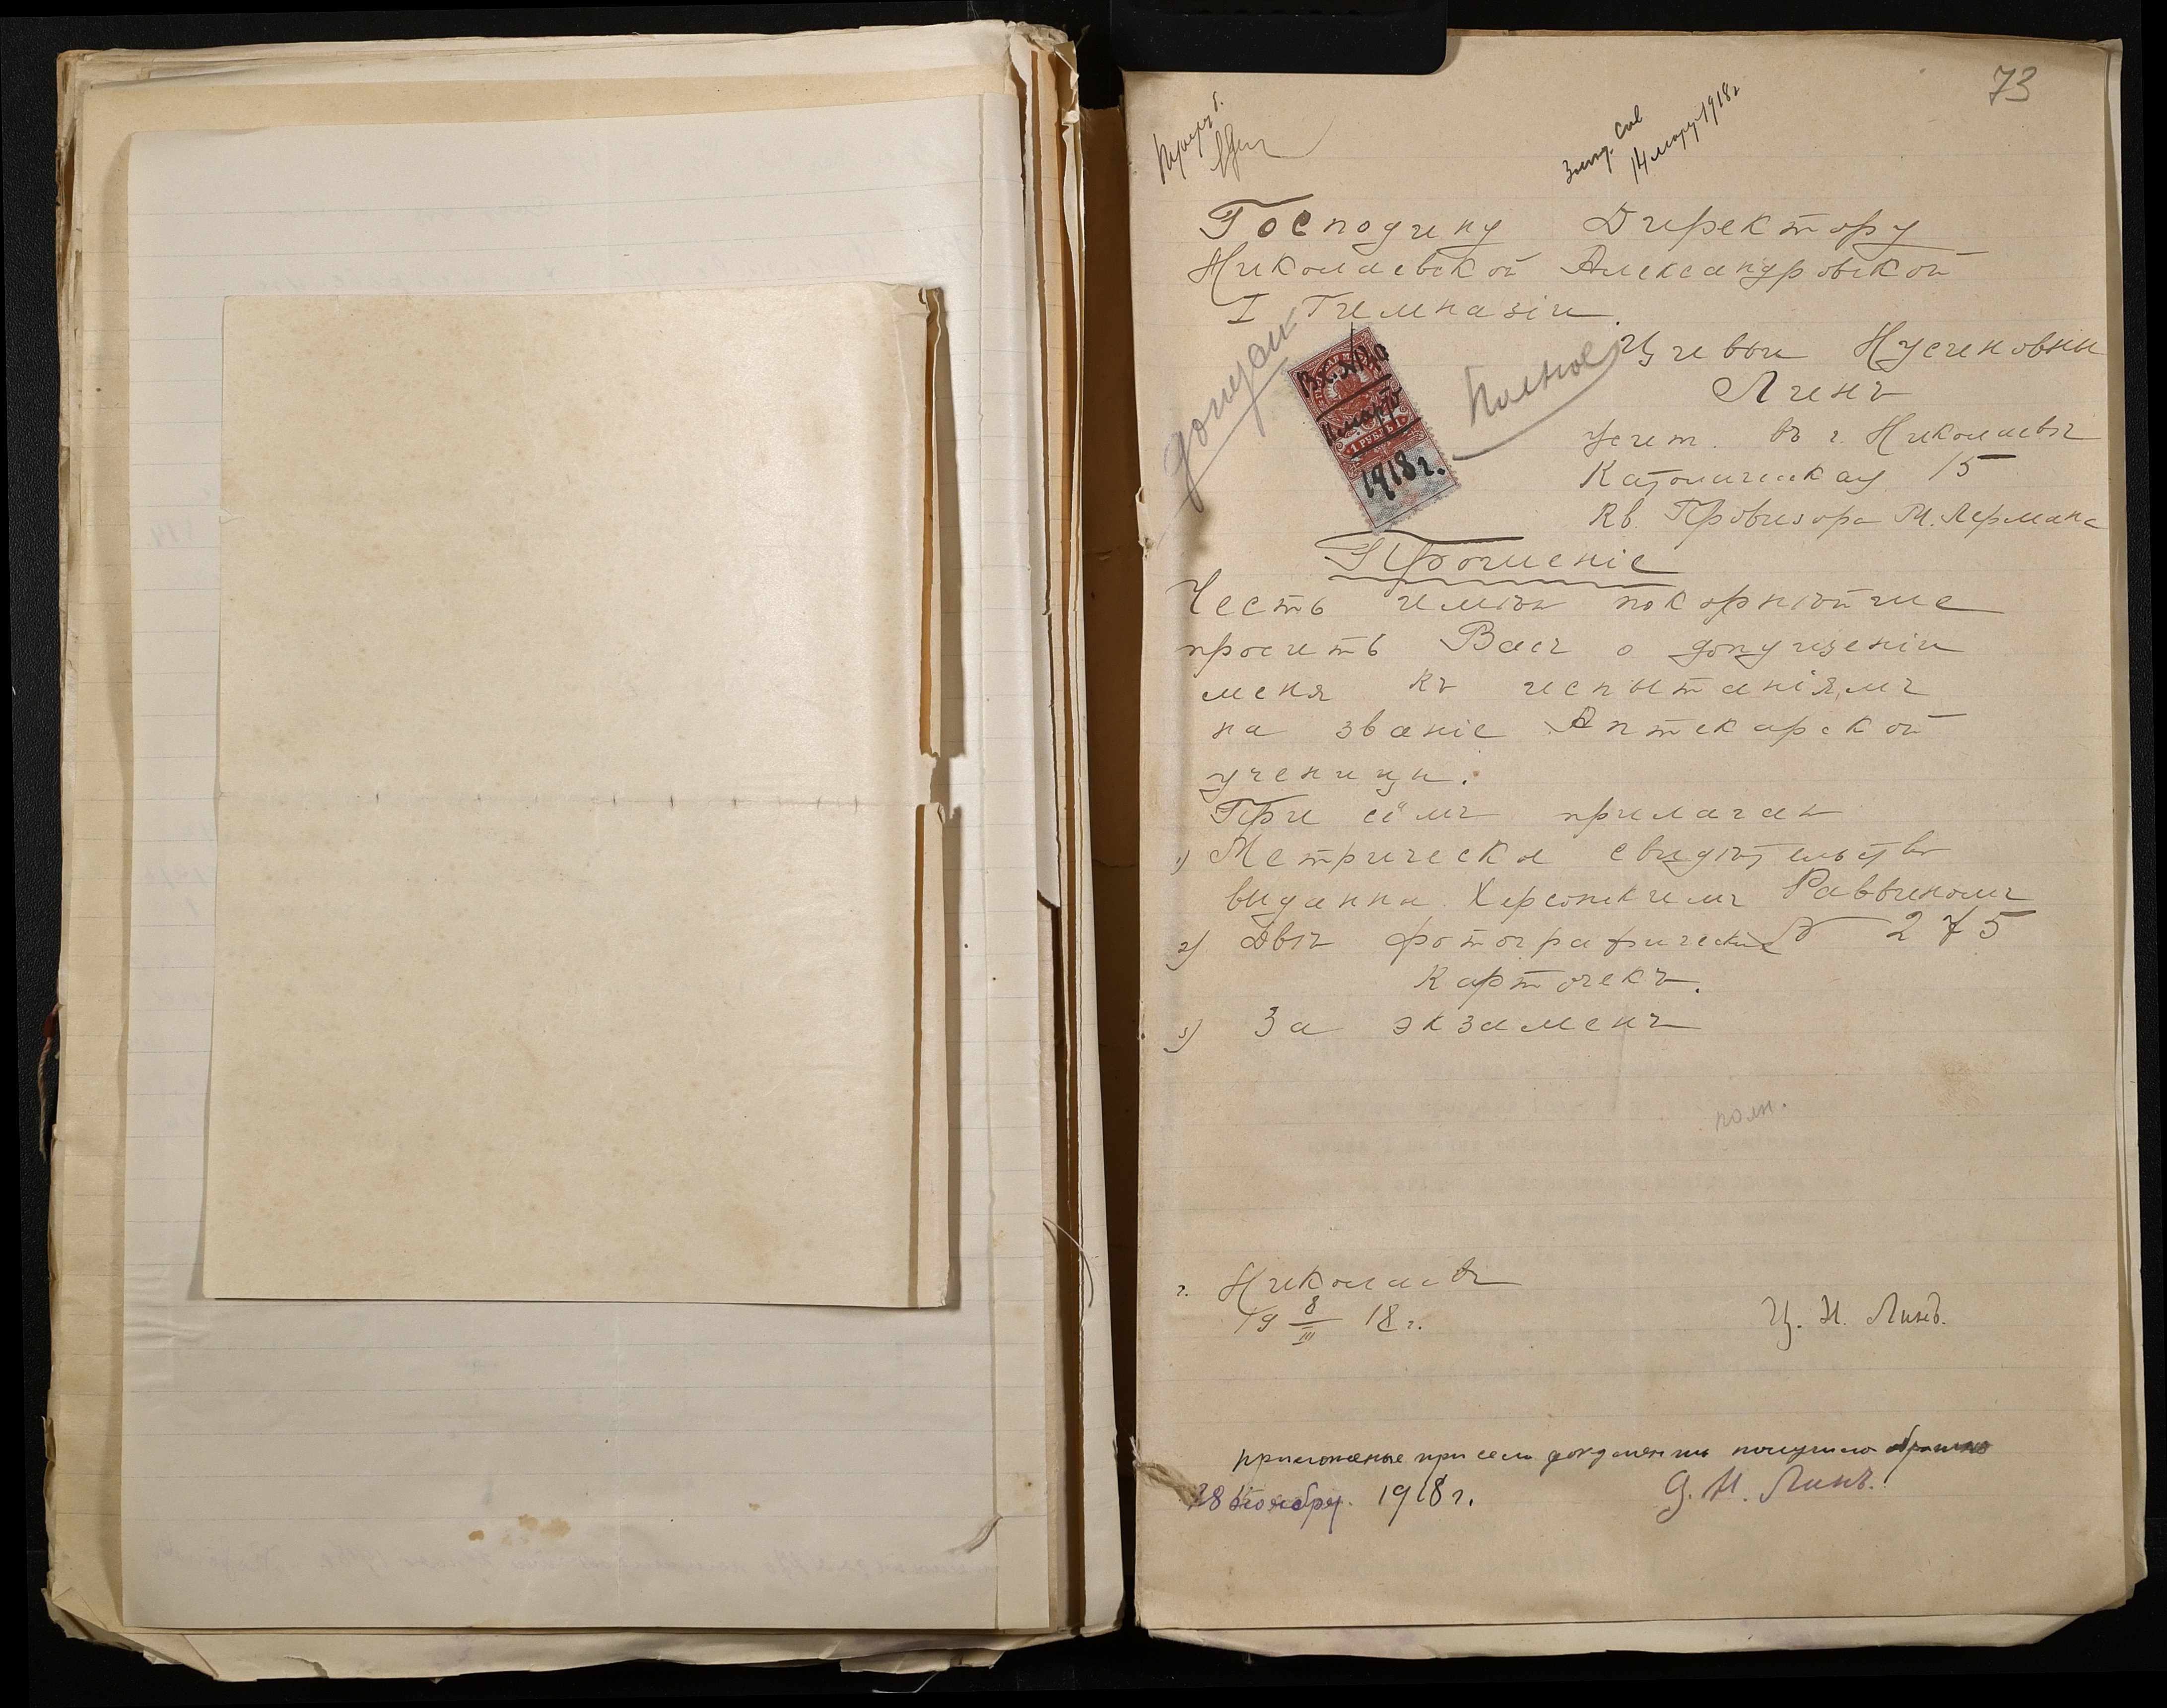 73
14 марта 1918 г
Господину Директору
Николаевской Александровской
I Гимназіи.
Цивьи Нусиновны
Линъ
допущ
Полное
Вх. №
марта
1 РУБЛЬ 1
1918 г.
Жит. въ г. Николаевѣ
Католическая 15
кв. Провизора М. Лермана
Прошеніе
Честь имѣю покорнѣйше
просить Васъ о допущеніи
меня къ испытаніямъ
на званіе Аптекарской
ученицы.
При сёмъ прилагаю
1) Метрическое свидѣтельство
выданно Херсонскимъ Раввиномъ
2) Двѣ фотографическіе № 275
карточекъ.
3) За экзаменъ
полн.
г. Николаевъ
19 8/III 18 г.
Ц. Н. Линъ.
приложенные при семъ документы получила обратно
28 Ноября 1918 г.
Ц. Н. Линъ.